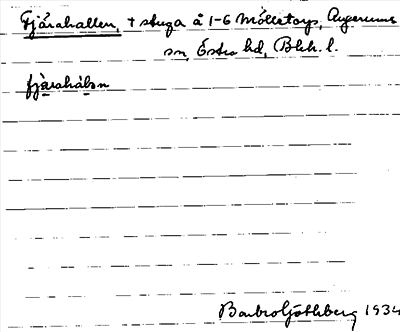 Fjärahallen, + stuga å 1-6 Mölletorp, Augerums
sn, Östra hd, Blek. l.
fjärahàlən
Barbro Ljothberg 1934